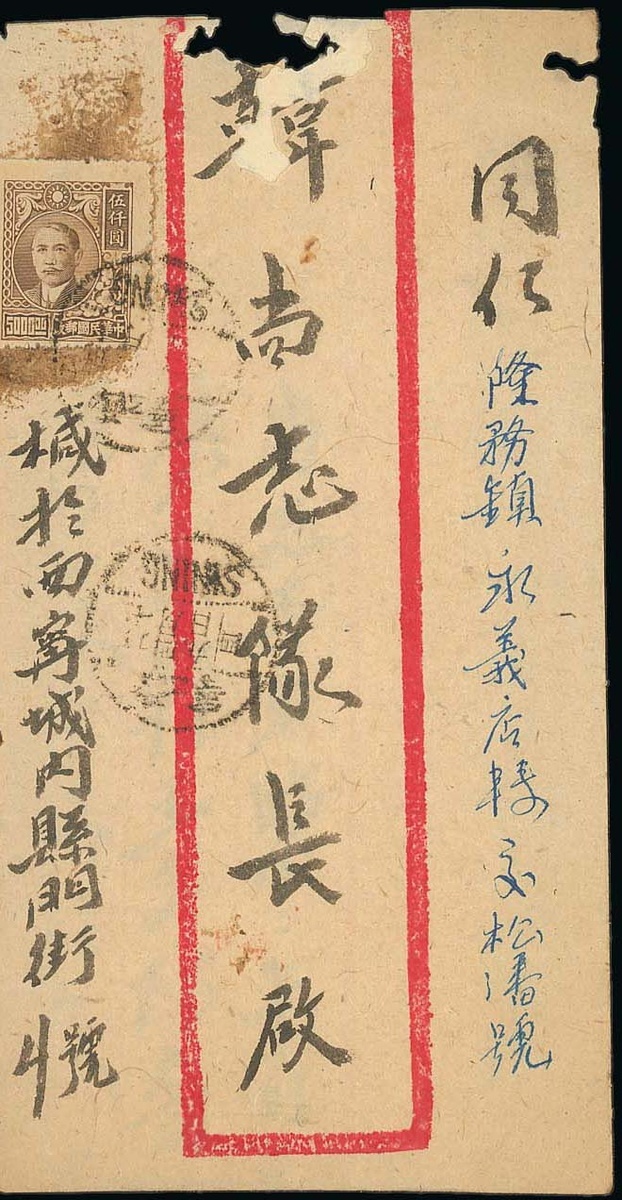 同仁隆務鎮永義店轉交松潘號
韓尚志隊長啟
緘於西寧城內縣門街4號
伍仟圓
中華民國郵政
500000
SINING
SINING